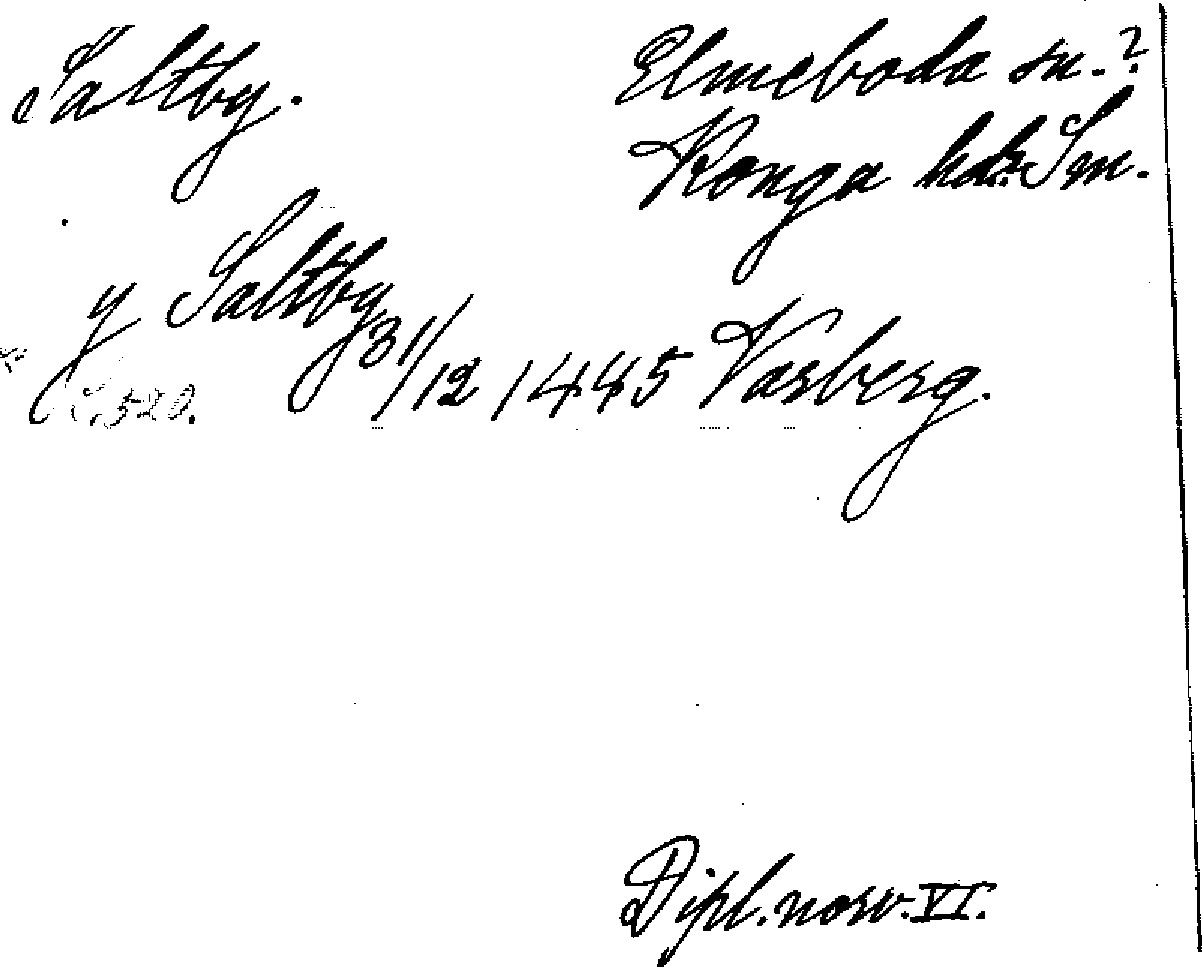 Saltby. Elmeboda sn.?
Konga hds. Sm.
y Saltby 31/12 1445 Varberg.
S. 520.
Dipl. norv. VI.